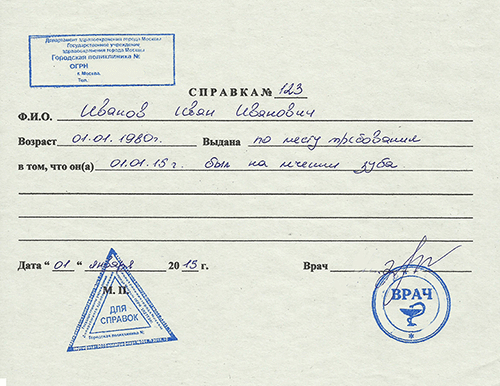 Департамент здравоохранения города Москвы
Государственное учреждение
здравоохранения города Москвы
Городская поликлиника №
ОГРН
г. Москва.
Тел.
СПРАВКА № 123
Ф.И.О. Иванов Иван Иванович
Возраст 01.01.1980г. Выдана по месту требования
в том, что он(а) 01.01.15 г. был на лечении зуба
Дата "01" января 2015 г. Врач
М. П.
ДЛЯ
СПРАВОК
Городская поликлиника №
ВРАЧ